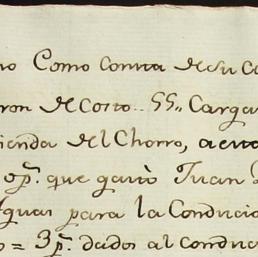 no Como consta de su C
ron de Costo. 55,, Carga
ienda del Chorro, a
op.s que gastó Juan
Aguas para la Conducio
o = 3p.s dados al conduc